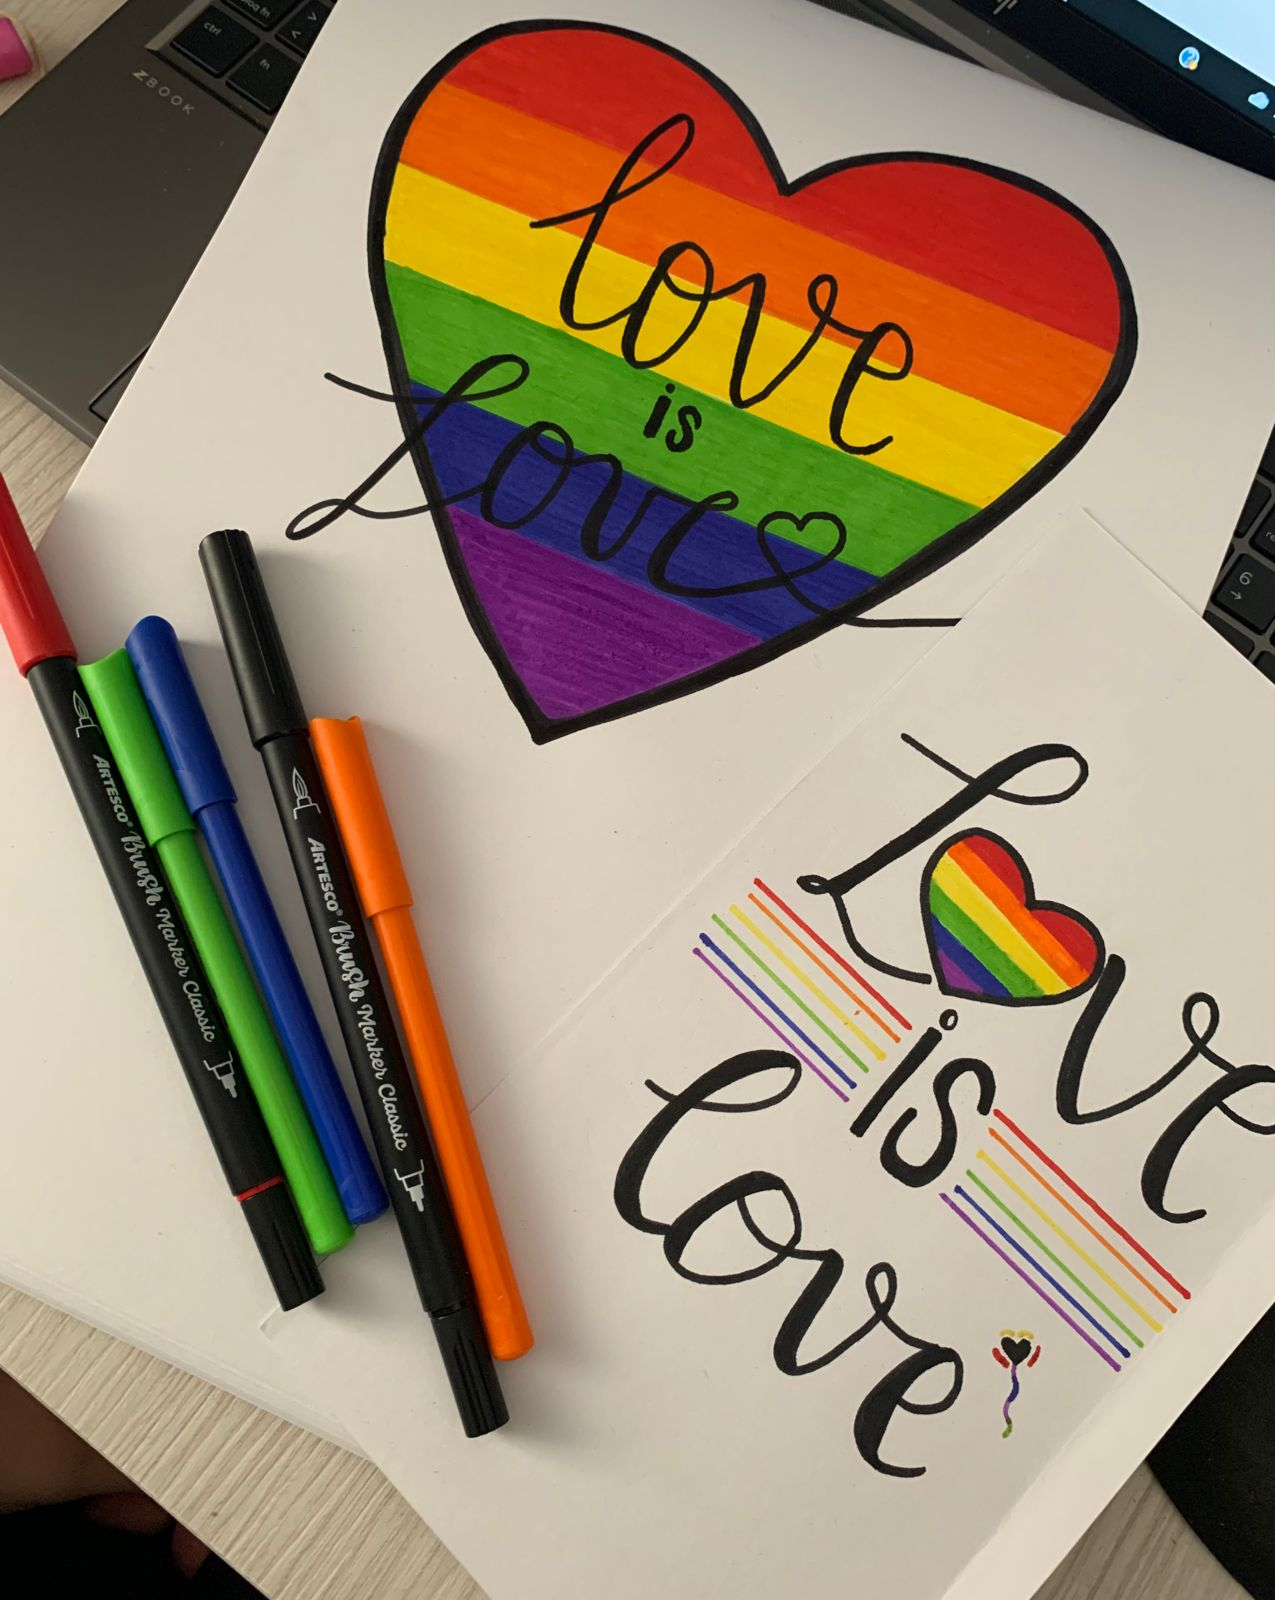 ctrl
fn
ZBOOK
hp
love
is
Love
ARTESCO® Brush Marker Classic
ARTESCO® Brush Marker Classic
6
Love
is
love